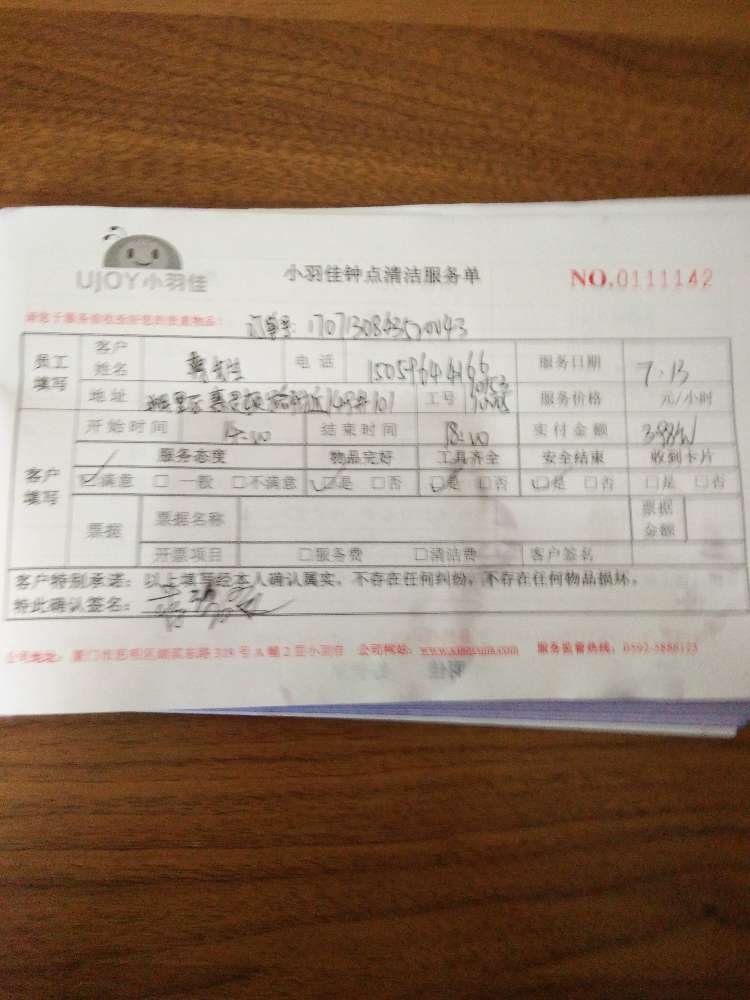 UJOY小羽佳
小羽佳钟点清洁服务单
NO.0111142
请您于服务前收拾好您的贵重物品!
订单号:
员工填写 客户姓名 电话 15059644166 服务日期 7.13
地址 149号101 工号 服务价格 元/小时
客户填写 开始时间 14:00 结束时间 18:00 实付金额
服务态度 物品完好 工具齐全 安全结束 收到卡片
☑满意 □一般 □不满意 ☑是 □否 ☑是 □否 ☑是 □否 □是 □否
票据 票据名称 票据金额
开票项目 □服务费 □清洁费 客户签名
客户特别承诺:以上填写经本人确认属实,不存在任何纠纷,不存在任何物品损坏。
特此确认签名:
公司地址: 厦门市思明区湖滨东路319号A幢2层小羽佳 公司网站: 服务监督热线: